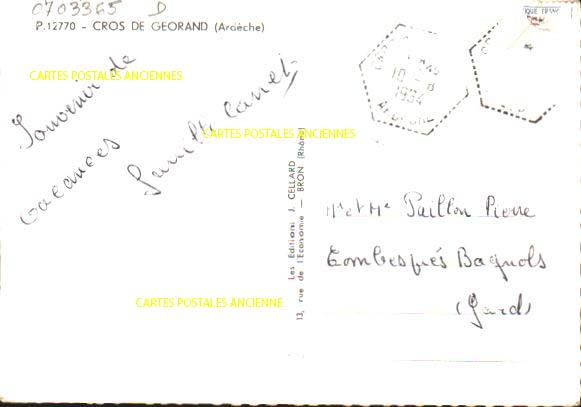 0703365 D
P.12770 - CROS DE GEORAND (Ardèche)
QUE FRANC
CARTES POSTALES ANCIENNES
Souvenir de
vacances
Famille Canet
CARTES POSTALES ANCIENNES
10
1964
ARDECHE
Les Editions J. CELLARD
13, rue de l'Economie — BRON (Rhône)
Mr et Me Paillon Pierre
Combesqués Bagnols
(Gard)
CARTES POSTALES ANCIENNE